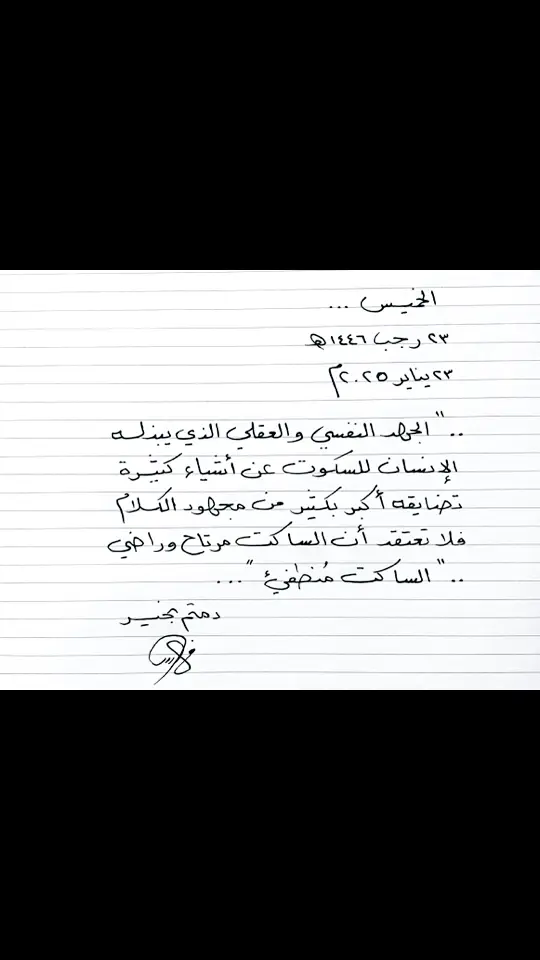 الخميس ...
٢٣ رجب ١٤٤٦هـ
٢٣ يناير ٢٠٢٥م
.." الجهد النفسي والعقلي الذي يبذله
الإنسان للسكوت عن أشياء كثيرة
تضايقه أكبر بكثير من مجهود الكلام
فلا تعتقد أن الساكت مرتاح وراضي
.." الساكت مُنطفئ "...
دمتم بخير